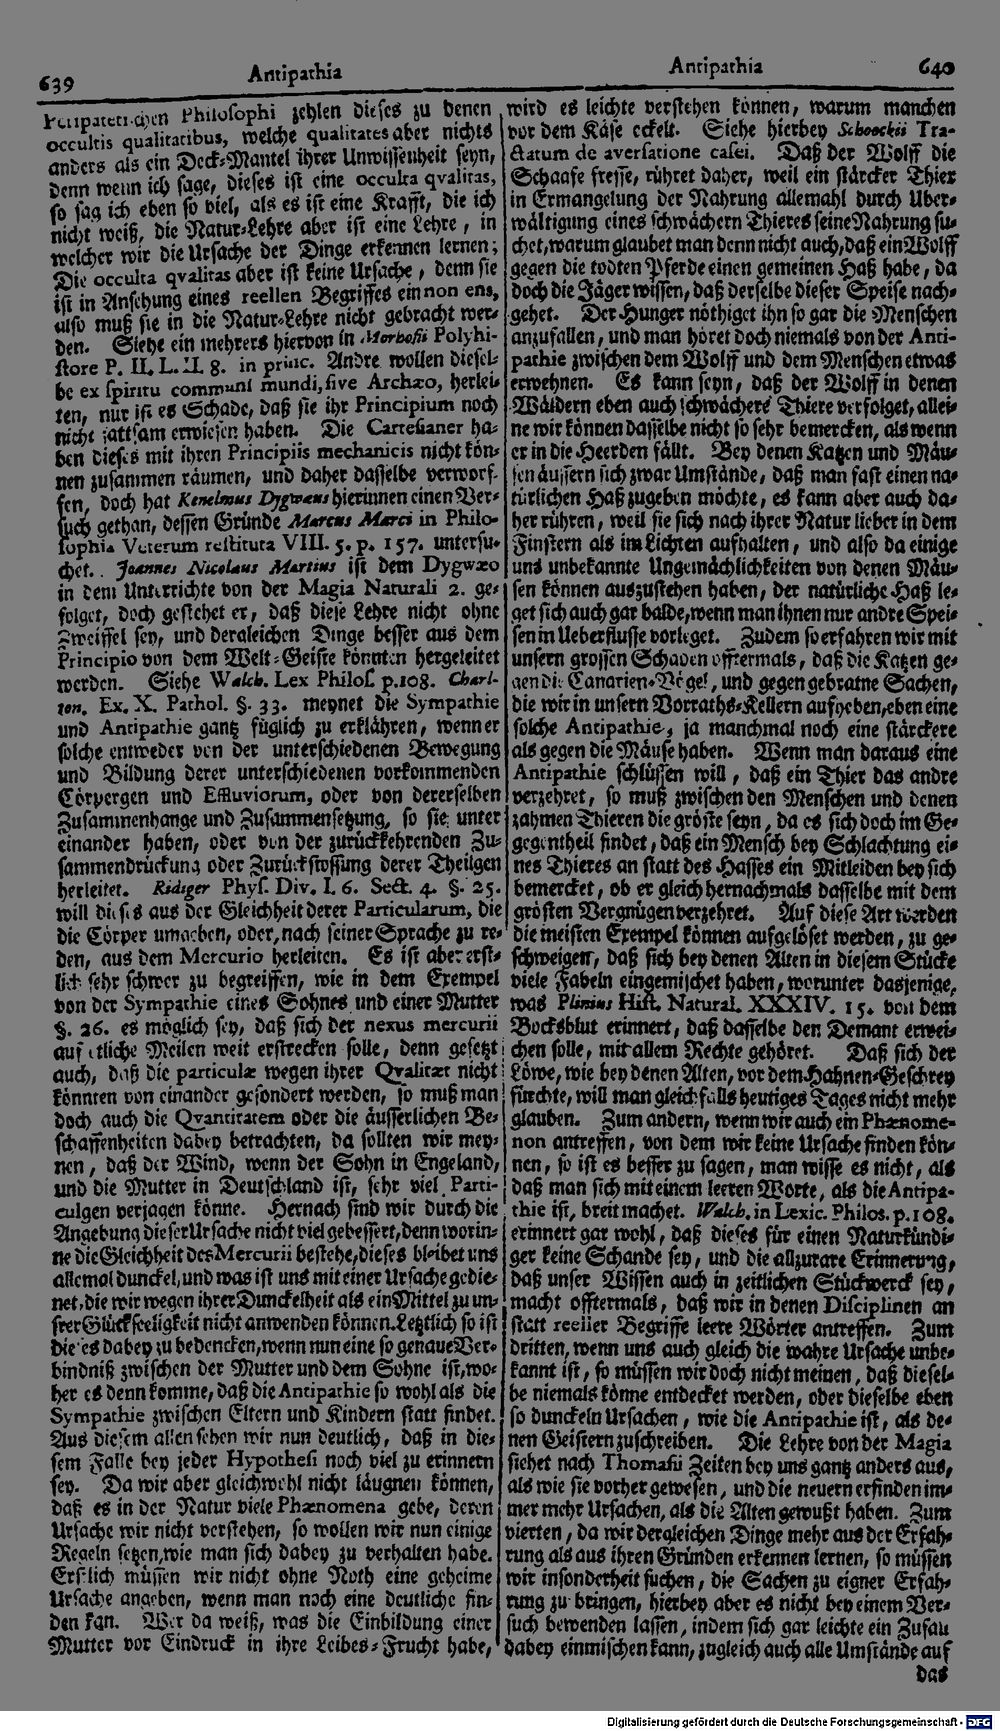 639 Antipathia
Antipathia 640
Peripatetischen Philosophi zehlen dieses zu denen
occultis qualitatibus, welche qualitates aber nichts
anders als ein Deck-Mantel ihrer Unwissenheit seyn,
denn wenn ich sage, dieses ist eine occulta qvalitas,
so sag ich eben so viel, als es ist eine Krafft, die ich
nicht weiß, die Natur-Lehre aber ist eine Lehre, in
welcher wir die Ursache der Dinge erkennen lernen;
Die occulta qvalitas aber ist keine Ursache, denn sie
ist in Ansehung eines reellen Begriffes ein non ens,
also muß sie in die Natur-Lehre nicht gebracht wer-
den. Siehe ein mehrers hiervon in Morhofii Polyhi-
store P. II. L. II 8. in princ. Andre wollen diesel-
be ex spiritu communi mundi, sive Archæo, herlei-
ten, nur ist es Schade, daß sie ihr Principium noch
nicht sattsam erwiesen haben. Die Cartesianer ha-
ben dieses mit ihren Principiis mechanicis nicht kön-
nen zusammen räumen, und daher dasselbe verworf-
fen, doch hat Kenelmus Dygwæus hierinnen einen Ver-
such gethan, dessen Gründe Marcus Marci in Philo-
sophia Veterum restituta VIII. 5. p. 157. untersu-
chet. Joannes Nicolaus Martius ist dem Dygwæo
in dem Unterrichte von der Magia Naturali 2. ge-
folget, doch gestehet er, daß diese Lehre nicht ohne
Zweiffel sey, und dergleichen Dinge besser aus dem
Principio von dem Welt-Geiste könnten hergeleitet
werden. Siehe Walch. Lex Philos. p. 108. Charl-
ton. Ex. X. Pathol. §. 33. meynet die Sympathie
und Antipathie gantz füglich zu erklähren, wenn er
solche entweder von der unterschiedenen Bewegung
und Bildung derer unterschiedenen vorkommenden
Cörpergen und Effluviorum, oder von dererselben
Zusammenhange und Zusammensetzung, so sie unter
einander haben, oder von der zurückkehrenden Zu-
sammendrückung oder Zurückstossung derer Theilgen
herleitet. Ridiger Phys. Div. I. 6. Sect. 4. §. 25.
will dieses aus der Gleichheit derer Particularum, die
die Cörper umgeben, oder, nach seiner Sprache zu re-
den, aus dem Mercurio herleiten. Es ist aber erst-
lich sehr schwer zu begreiffen, wie in dem Exempel
von der Sympathie eines Sohnes und einer Mutter
§. 26. es möglich sey, daß sich der nexus mercurii
auf etliche Meilen weit erstrecken solle, denn gesetzt
auch, daß die particulæ wegen ihrer Qvalitæt nicht
könnten von einander gesondert werden, so muß man
doch auch die Qvantitatem oder die äusserlichen Be-
schaffenheiten dabey betrachten, da sollten wir mey-
nen, daß der Wind, wenn der Sohn in Engeland,
und die Mutter in Deutschland ist, sehr viel Parti-
culgen verjagen könne. Hernach sind wir durch die
Angebung dieser Ursache nicht viel gebessert, denn worin-
ne die Gleichheit des Mercurii bestehe, dieses bleibet uns
allemal dunckel, und was ist uns mit einer Ursache gedie-
net, die wir wegen ihrer Dunckelheit als ein Mittel zu un-
srer Glückseeligkeit nicht anwenden können. Letztlich so ist
dieses dabey zu bedencken, wenn nun eine so genaue Ver-
bindniß zwischen der Mutter und dem Sohne ist, wo-
her es denn komme, daß die Antipathie so wohl als die
Sympathie zwischen Eltern und Kindern statt findet.
Aus diesem allen sehen wir nun deutlich, daß in die-
sem Falle bey jeder Hypothesi noch viel zu erinnern
sey. Da wir aber gleichwohl nicht läugnen können,
daß es in der Natur viele Phænomena gebe, deren
Ursache wir nicht verstehen, so wollen wir nun einige
Regeln setzen, wie man sich dabey zu verhalten habe.
Erstlich müssen wir nicht ohne Noth eine geheime
Ursache angeben, wenn man noch eine deutliche fin-
den kan. Wer da weiß, was die Einbildung einer
Mutter vor Eindruck in ihre Leibes-Frucht habe,
wird es leichte verstehen können, warum manchen
vor dem Käse eckelt. Siehe hierbey Schoockii Tra-
ctatum de aversatione casei. Daß der Wolff die
Schaafe fresse, rühret daher, weil ein stärcker Thier
in Ermangelung der Nahrung allemahl durch Über-
wältigung eines schwächern Thieres seine Nahrung su-
chet, warum glaubet man denn nicht auch, daß ein Wolff
gegen die todten Pferde einen gemeinen Haß habe, da
doch die Jäger wissen, daß derselbe dieser Speise nach-
gehet. Der Hunger nöthiget ihn so gar die Menschen
anzufallen, und man höret doch niemals von der Anti-
pathie zwischen dem Wolff und dem Menschen etwas
erwehnen. Es kann seyn, daß der Wolff in denen
Wäldern eben auch schwächere Thiere verfolget, allei-
ne wir können dasselbe nicht so sehr bemercken, als wenn
er in die Heerden fällt. Bey denen Katzen und Mäu-
sen äussern sich zwar Umstände, daß man fast einen na-
türlichen Haß zugeben möchte, es kann aber auch da-
her rühren, weil sie sich nach ihrer Natur lieber in dem
Finstern als im Lichten aufhalten, und also da einige
uns unbekannte Ungemächlichkeiten von denen Mäu-
sen können auszustehen haben, der natürliche Haß le-
get sich auch gar balde, wenn man ihnen nur andre Spei-
sen in Ueberflusse vorleget. Zudem so erfahren wir mit
unsern grossen Schaden offtermals, daß die Katzen ge-
gen die Canarien-Vögel, und gegen gebratne Sachen,
die wir in unsern Vorraths-Kellern aufheben, eben eine
solche Antipathie, ja manchmal noch eine stärckere
als gegen die Mäuse haben. Wenn man daraus eine
Antipathie schlüssen will, daß ein Thier das andre
verzehret, so muß zwischen den Menschen und denen
zahmen Thieren die gröste seyn, da es sich doch im Ge-
gegentheil findet, daß ein Mensch bey Schlachtung ei-
nes Thieres an statt des Hasses ein Mitleiden bey sich
bemercket, ob er gleich hernachmals dasselbe mit dem
grösten Vergnügen verzehret. Auf diese Art werden
die meisten Exempel können aufgelöset werden, zu ge-
schweigen, daß sich bey denen Alten in diesem Stücke
viele Fabeln eingemischet haben, worunter dasjenige,
was Plinius Hist. Natural. XXXIV. 15. von dem
Bocksblut erinnert, daß dasselbe den Demant erwei-
chen solle, mit allem Rechte gehöret. Daß sich der
Löwe, wie bey denen Alten, vor dem Hahnen-Geschrey
fürchte, will man gleichfalls heutiges Tages nicht mehr
glauben. Zum andern, wenn wir auch ein Phænome-
non antreffen, von dem wir keine Ursache finden kön-
nen, so ist es besser zu sagen, man wisse es nicht, als
daß man sich mit einem leeren Worte, als die Antipa-
thie ist, breit machet. Walch. in Lexic. Philos. p. 108.
erinnert gar wohl, daß dieses für einen Naturkündi-
ger keine Schande sey, und die allzurare Erinnerung,
daß unser Wissen auch in zeitlichen Stückwerck sey,
macht offtermals, daß wir in denen Disciplinen an
statt reeller Begriffe leere Wörter antreffen. Zum
dritten, wenn uns auch gleich die wahre Ursache unbe-
kannt ist, so müssen wir doch nicht meinen, daß diesel-
be niemals könne entdecket werden, oder dieselbe eben
so dunckeln Ursachen, wie die Antipathie ist, als de-
nen Geistern zuschreiben. Die Lehre von der Magia
siehet nach Thomasii Zeiten bey uns gantz anders aus,
als wie sie vorher gewesen, und die neuern erfinden im-
mer mehr Ursachen, als die Alten gewußt haben. Zum
vierten, da wir dergleichen Dinge mehr aus der Erfah-
rung als aus ihren Gründen erkennen lernen, so müssen
wir insonderheit suchen, die Sachen zu eigner Erfah-
rung zu bringen, hierbey aber es nicht bey einem Ver-
such bewenden lassen, indem sich gar leichte ein Zufall
dabey einmischen kann, zugleich auch alle Umstände auf
das
Digitalisierung gefördert durch die Deutsche Forschungsgemeinschaft - DFG